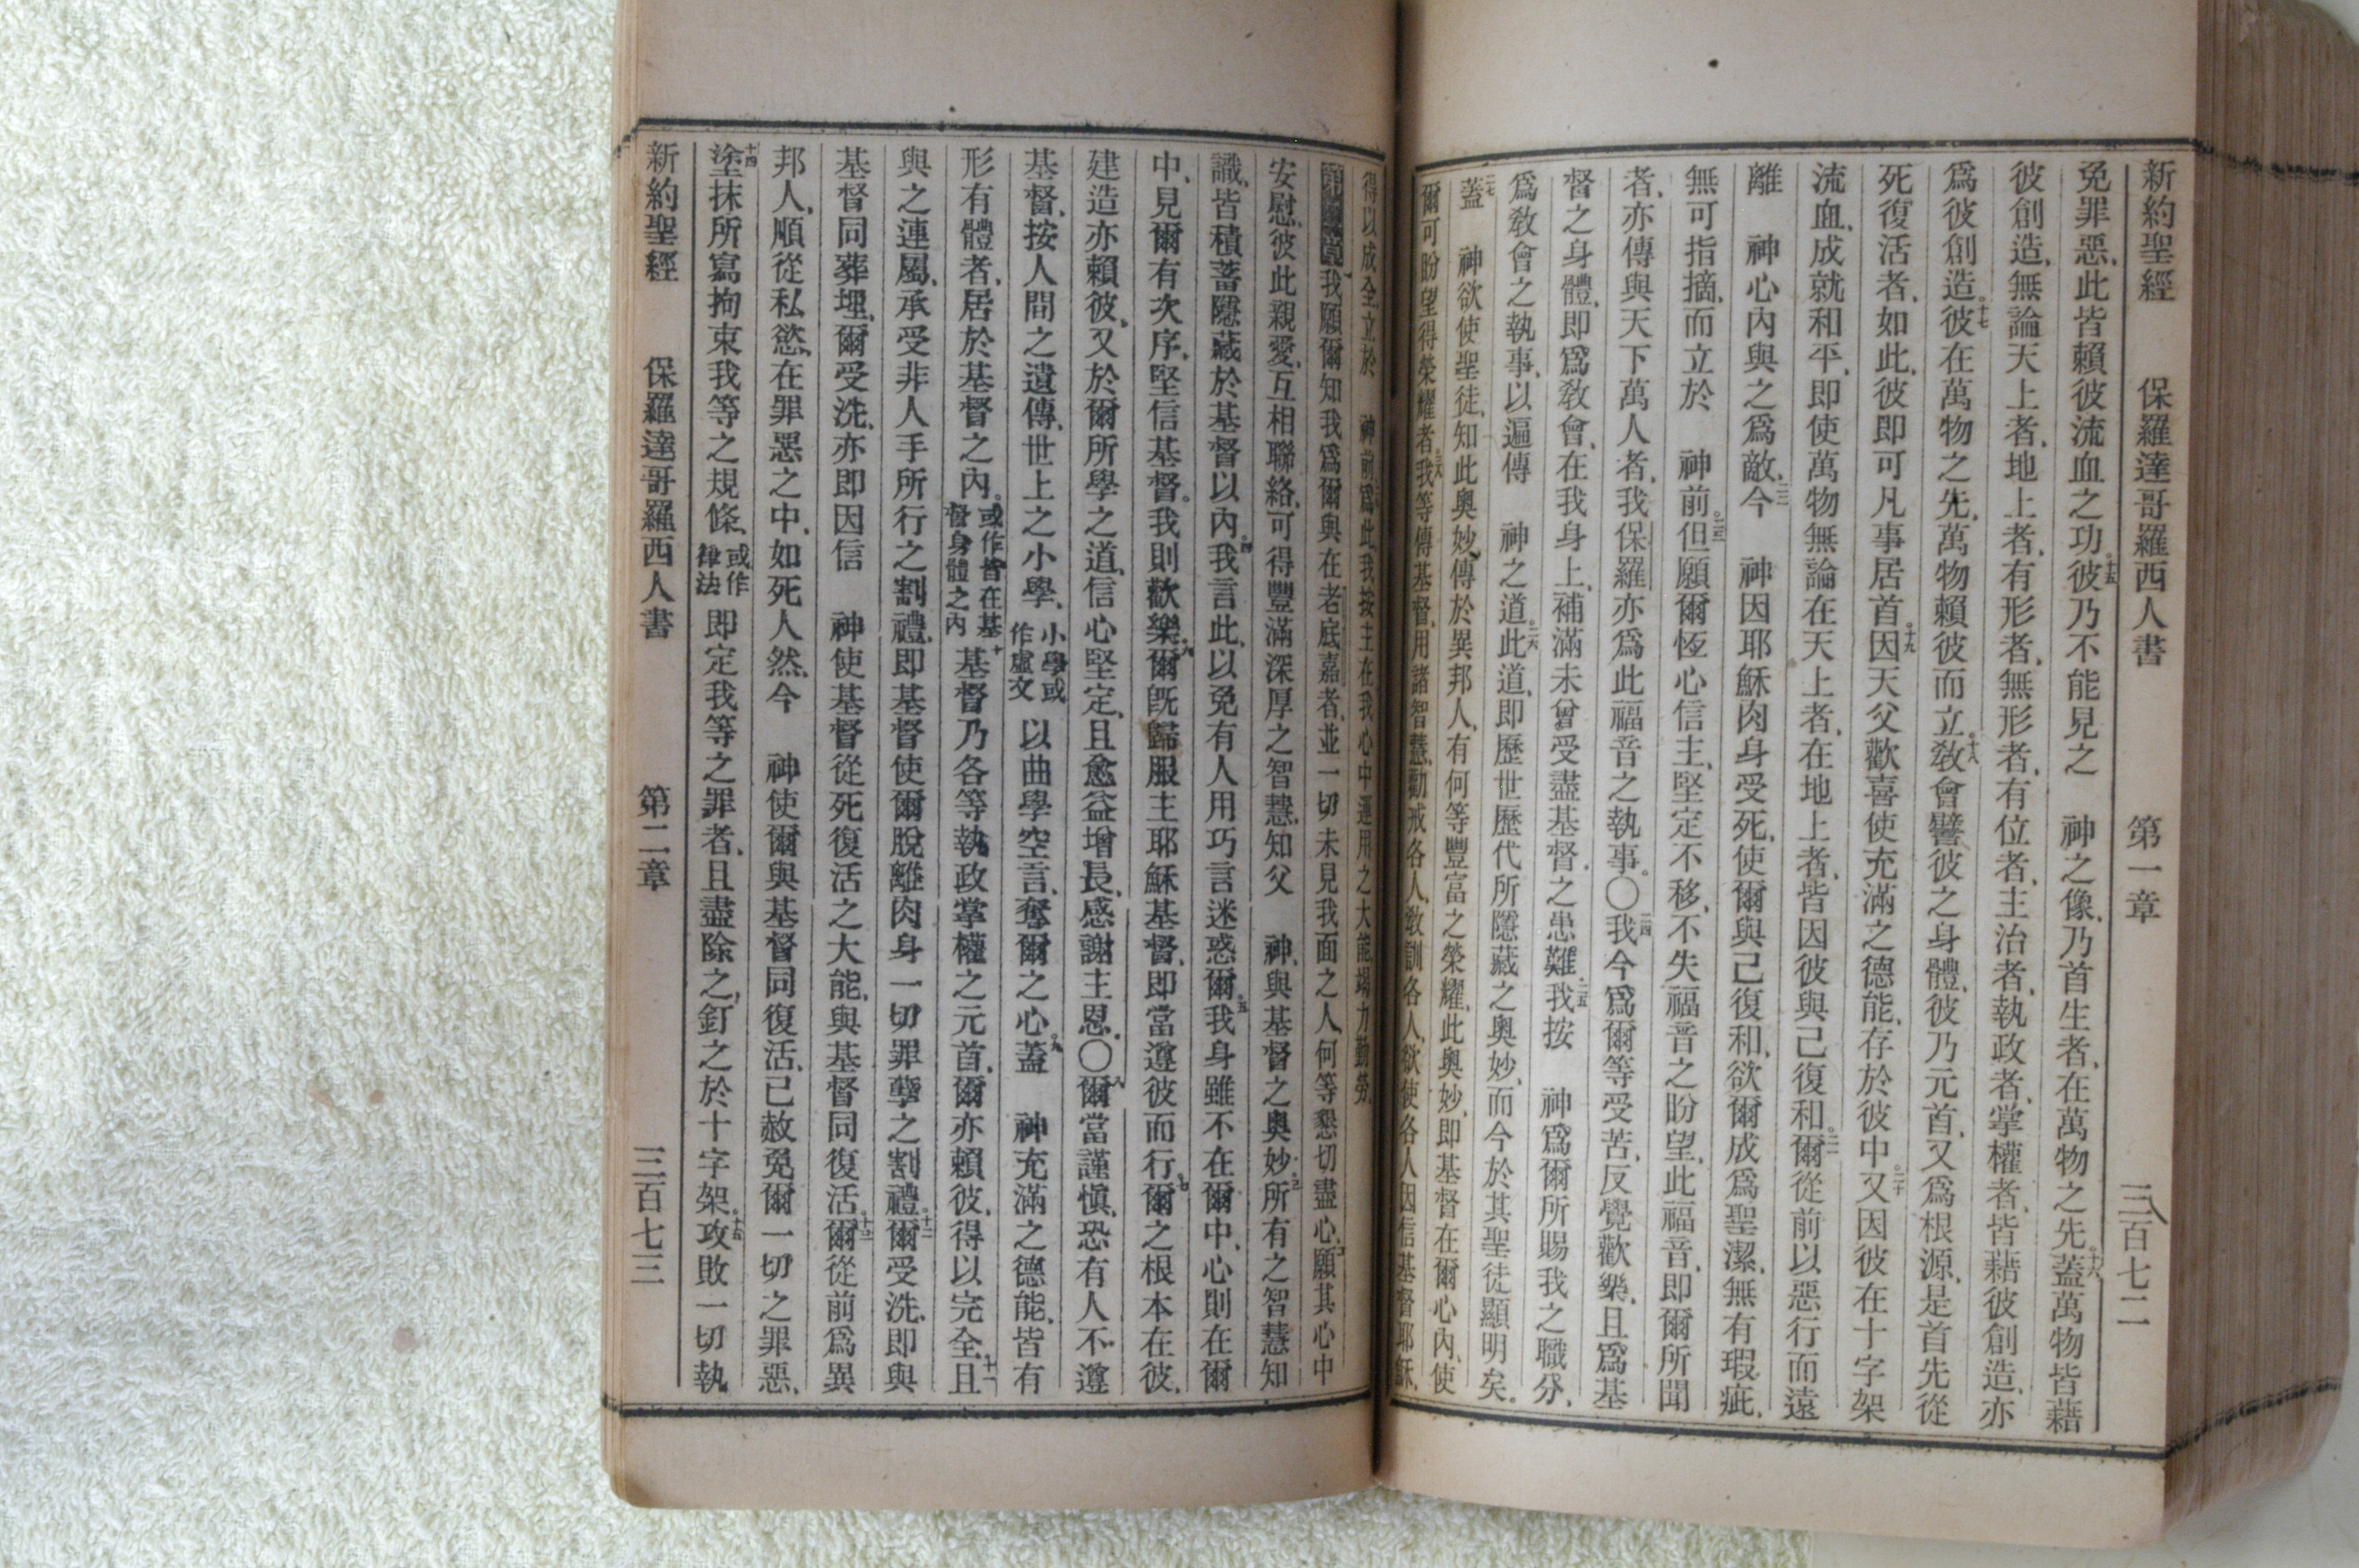 新約聖經 保羅達哥羅西人書 第一章 三百七二
免罪惡、此皆賴彼流血之功。十五彼乃不能見之 神之像、乃首生者、在萬物之先。十六蓋萬物皆藉
彼創造、無論天上者、地上者、有形者、無形者、有位者、主治者、執政者、掌權者、皆藉彼創造、亦
爲彼創造。十七彼在萬物之先、萬物賴彼而立。十八敎會譬彼之身體、彼乃元首、又爲根源、是首先從
死復活者、如此、彼即可凡事居首。十九因天父歡喜使充滿之德能、存於彼中。二十又因彼在十字架
流血、成就和平、即使萬物無論在天上者、在地上者、皆因彼與己復和。二一爾從前以惡行而遠
離 神心內與之爲敵、二二今 神因耶穌肉身受死、使爾與己復和、欲爾成爲聖潔、無有瑕疵、
無可指摘、而立於 神前。二三但願爾恆心信主、堅定不移、不失福音之盼望、此福音、即爾所聞
者、亦傳與天下萬人者、我保羅亦爲此福音之執事。〇二四我今爲爾等受苦、反覺歡樂、且爲基
督之身體、即爲敎會、在我身上、補滿未曾受盡基督之患難。二五我按 神爲爾所賜我之職分、
爲敎會之執事、以遍傳 神之道。二六此道、即歷世歷代所隱藏之奧妙、而今於其聖徒顯明矣。
二七蓋 神欲使聖徒、知此奧妙、傳於異邦人、有何等豐富之榮耀、此奧妙、即基督在爾心內、使
爾可盼望得榮耀者。二八我等傳基督、用諸智慧、勸戒各人、敎訓各人、欲使各人因信基督耶穌、
得以成全、立於 神前。爲此、我按主在我心中運用之大能、竭力勤勞。
我願爾知我爲爾與在老底嘉者、並一切未見我面之人、何等懇切盡心、二願其心中
安慰、彼此親愛、互相聯絡、可得豐滿深厚之智慧、知父 神、與基督之奧妙。三所有之智慧知
識、皆積蓄隱藏於基督以內。四我言此、以免有人用巧言迷惑爾。五我身雖不在爾中、心則在爾
中、見爾有次序、堅信基督。我則歡樂。六爾旣歸服主耶穌基督、即當遵彼而行。七爾之根本在彼、
建造亦賴彼、又於爾所學之道、信心堅定、且愈益增長、感謝主恩。〇八爾當謹愼、恐有人不遵
基督、按人間之遺傳、世上之小學、小學或作虛文以曲學空言、奪爾之心。九蓋 神充滿之德能、皆有
形有體者、居於基督之內。或作皆在基督身體之內十基督乃各等執政掌權之元首、爾亦賴彼、得以完全。十一且
與之連屬、承受非人手所行之割禮、即基督使爾脫離肉身一切罪孽之割禮。十二爾受洗、即與
基督同葬埋、爾受洗、亦即因信 神使基督從死復活之大能、與基督同復活。十三爾從前爲異
邦人、順從私慾、在罪惡之中、如死人然、今 神使爾與基督同復活、已赦免爾一切之罪惡、
十四塗抹所寫拘束我等之規條、或作律法即定我等之罪者、且盡除之、釘之於十字架。十五攻敗一切執
新約聖經 保羅達哥羅西人書 第二章 三百七三